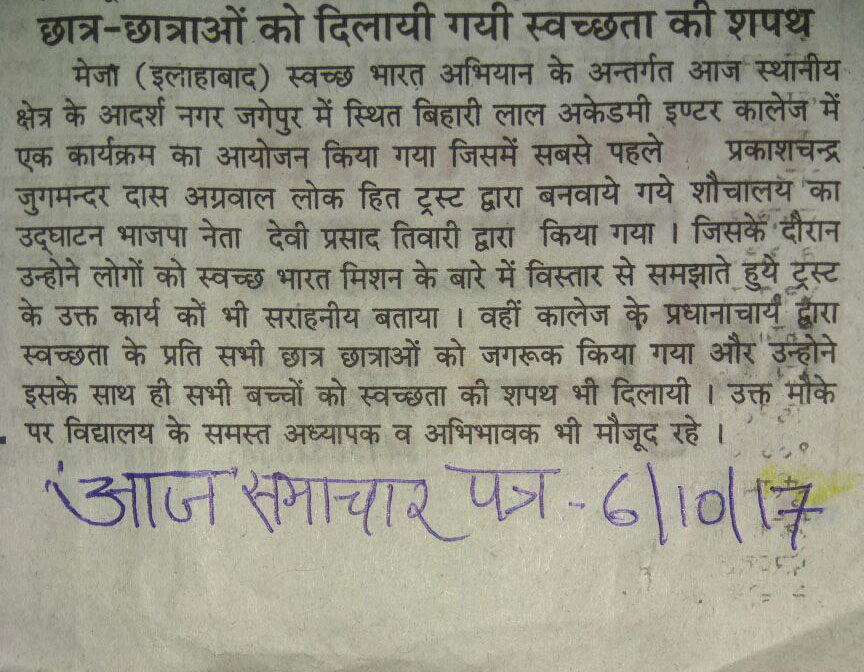 छात्र-छात्राओं को दिलायी गयी स्वच्छता की शपथ
मेजा (इलाहाबाद) स्वच्छ भारत अभियान के अन्तर्गत आज स्थानीय
क्षेत्र के आदर्श नगर जगेपुर में स्थित बिहारी लाल अकेडमी इण्टर कालेज में
एक कार्यक्रम का आयोजन किया गया जिसमें सबसे पहले प्रकाशचन्द्र
जुगमन्दर दास अग्रवाल लोक हित ट्रस्ट द्वारा बनवाये गये शौचालय का
उद्घाटन भाजपा नेता देवी प्रसाद तिवारी द्वारा किया गया । जिसके दौरान
उन्होने लोगों को स्वच्छ भारत मिशन के बारे में विस्तार से समझाते हुये ट्रस्ट
के उक्त कार्य कों भी सराहनीय बताया । वहीं कालेज के प्रधानाचार्य द्वारा
स्वच्छता के प्रति सभी छात्र छात्राओं को जगरूक किया गया और उन्होने
इसके साथ ही सभी बच्चों को स्वच्छता की शपथ भी दिलायी । उक्त मौके
पर विद्यालय के समस्त अध्यापक व अभिभावक भी मौजूद रहे ।
'आज' समाचार पत्र - 6/10/17